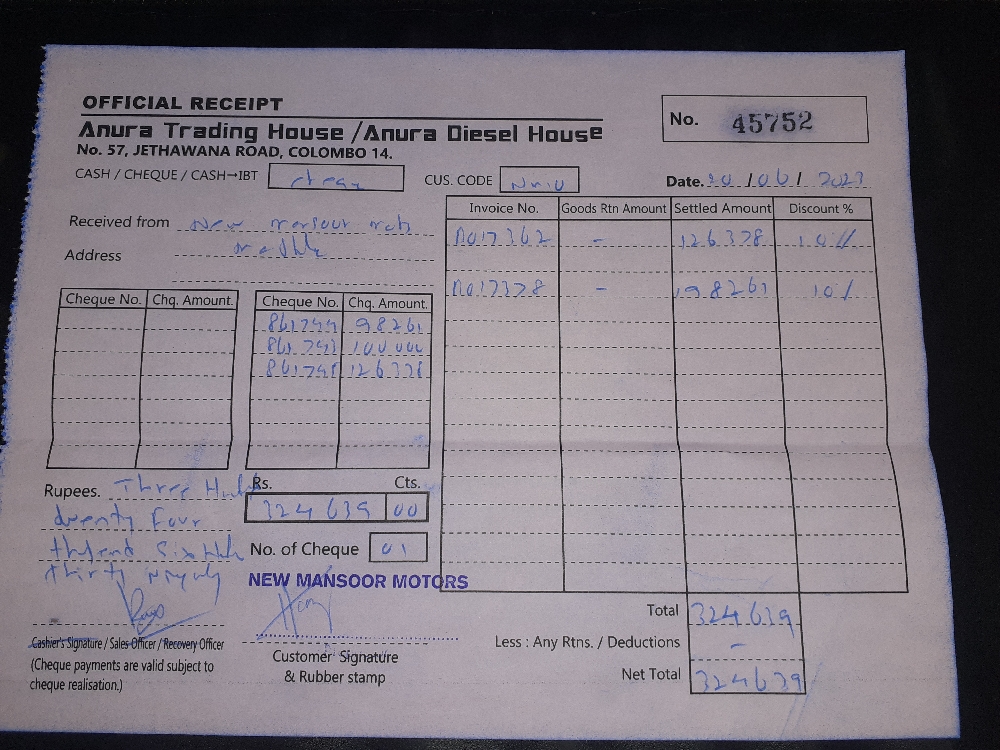 OFFICIAL RECEIPT
Anura Trading House /Anura Diesel House
No. 57, JETHAWANA ROAD, COLOMBO 14.
No. 45752
CASH / CHEQUE / CASH→IBT
CUS. CODE
Date. 20/06/2023
Received from New
Address
Invoice No. Goods Rtn Amount Settled Amount Discount %
A017362 - 126378 10%
A017378 - 198261 10%
Cheque No. Chq. Amount. Cheque No. Chq. Amount.
98261
100 000
126378
Rupees. Three
twenty Four
Six
thirty
Rs. Cts.
324 639 00
No. of Cheque 01
NEW MANSOOR MOTORS
Cashier's Signature / Sales Officer / Recovery Officer
(Cheque payments are valid subject to
cheque realisation.)
Customer Signature
& Rubber stamp
Total 324639
Less : Any Rtns. / Deductions -
Net Total 324639